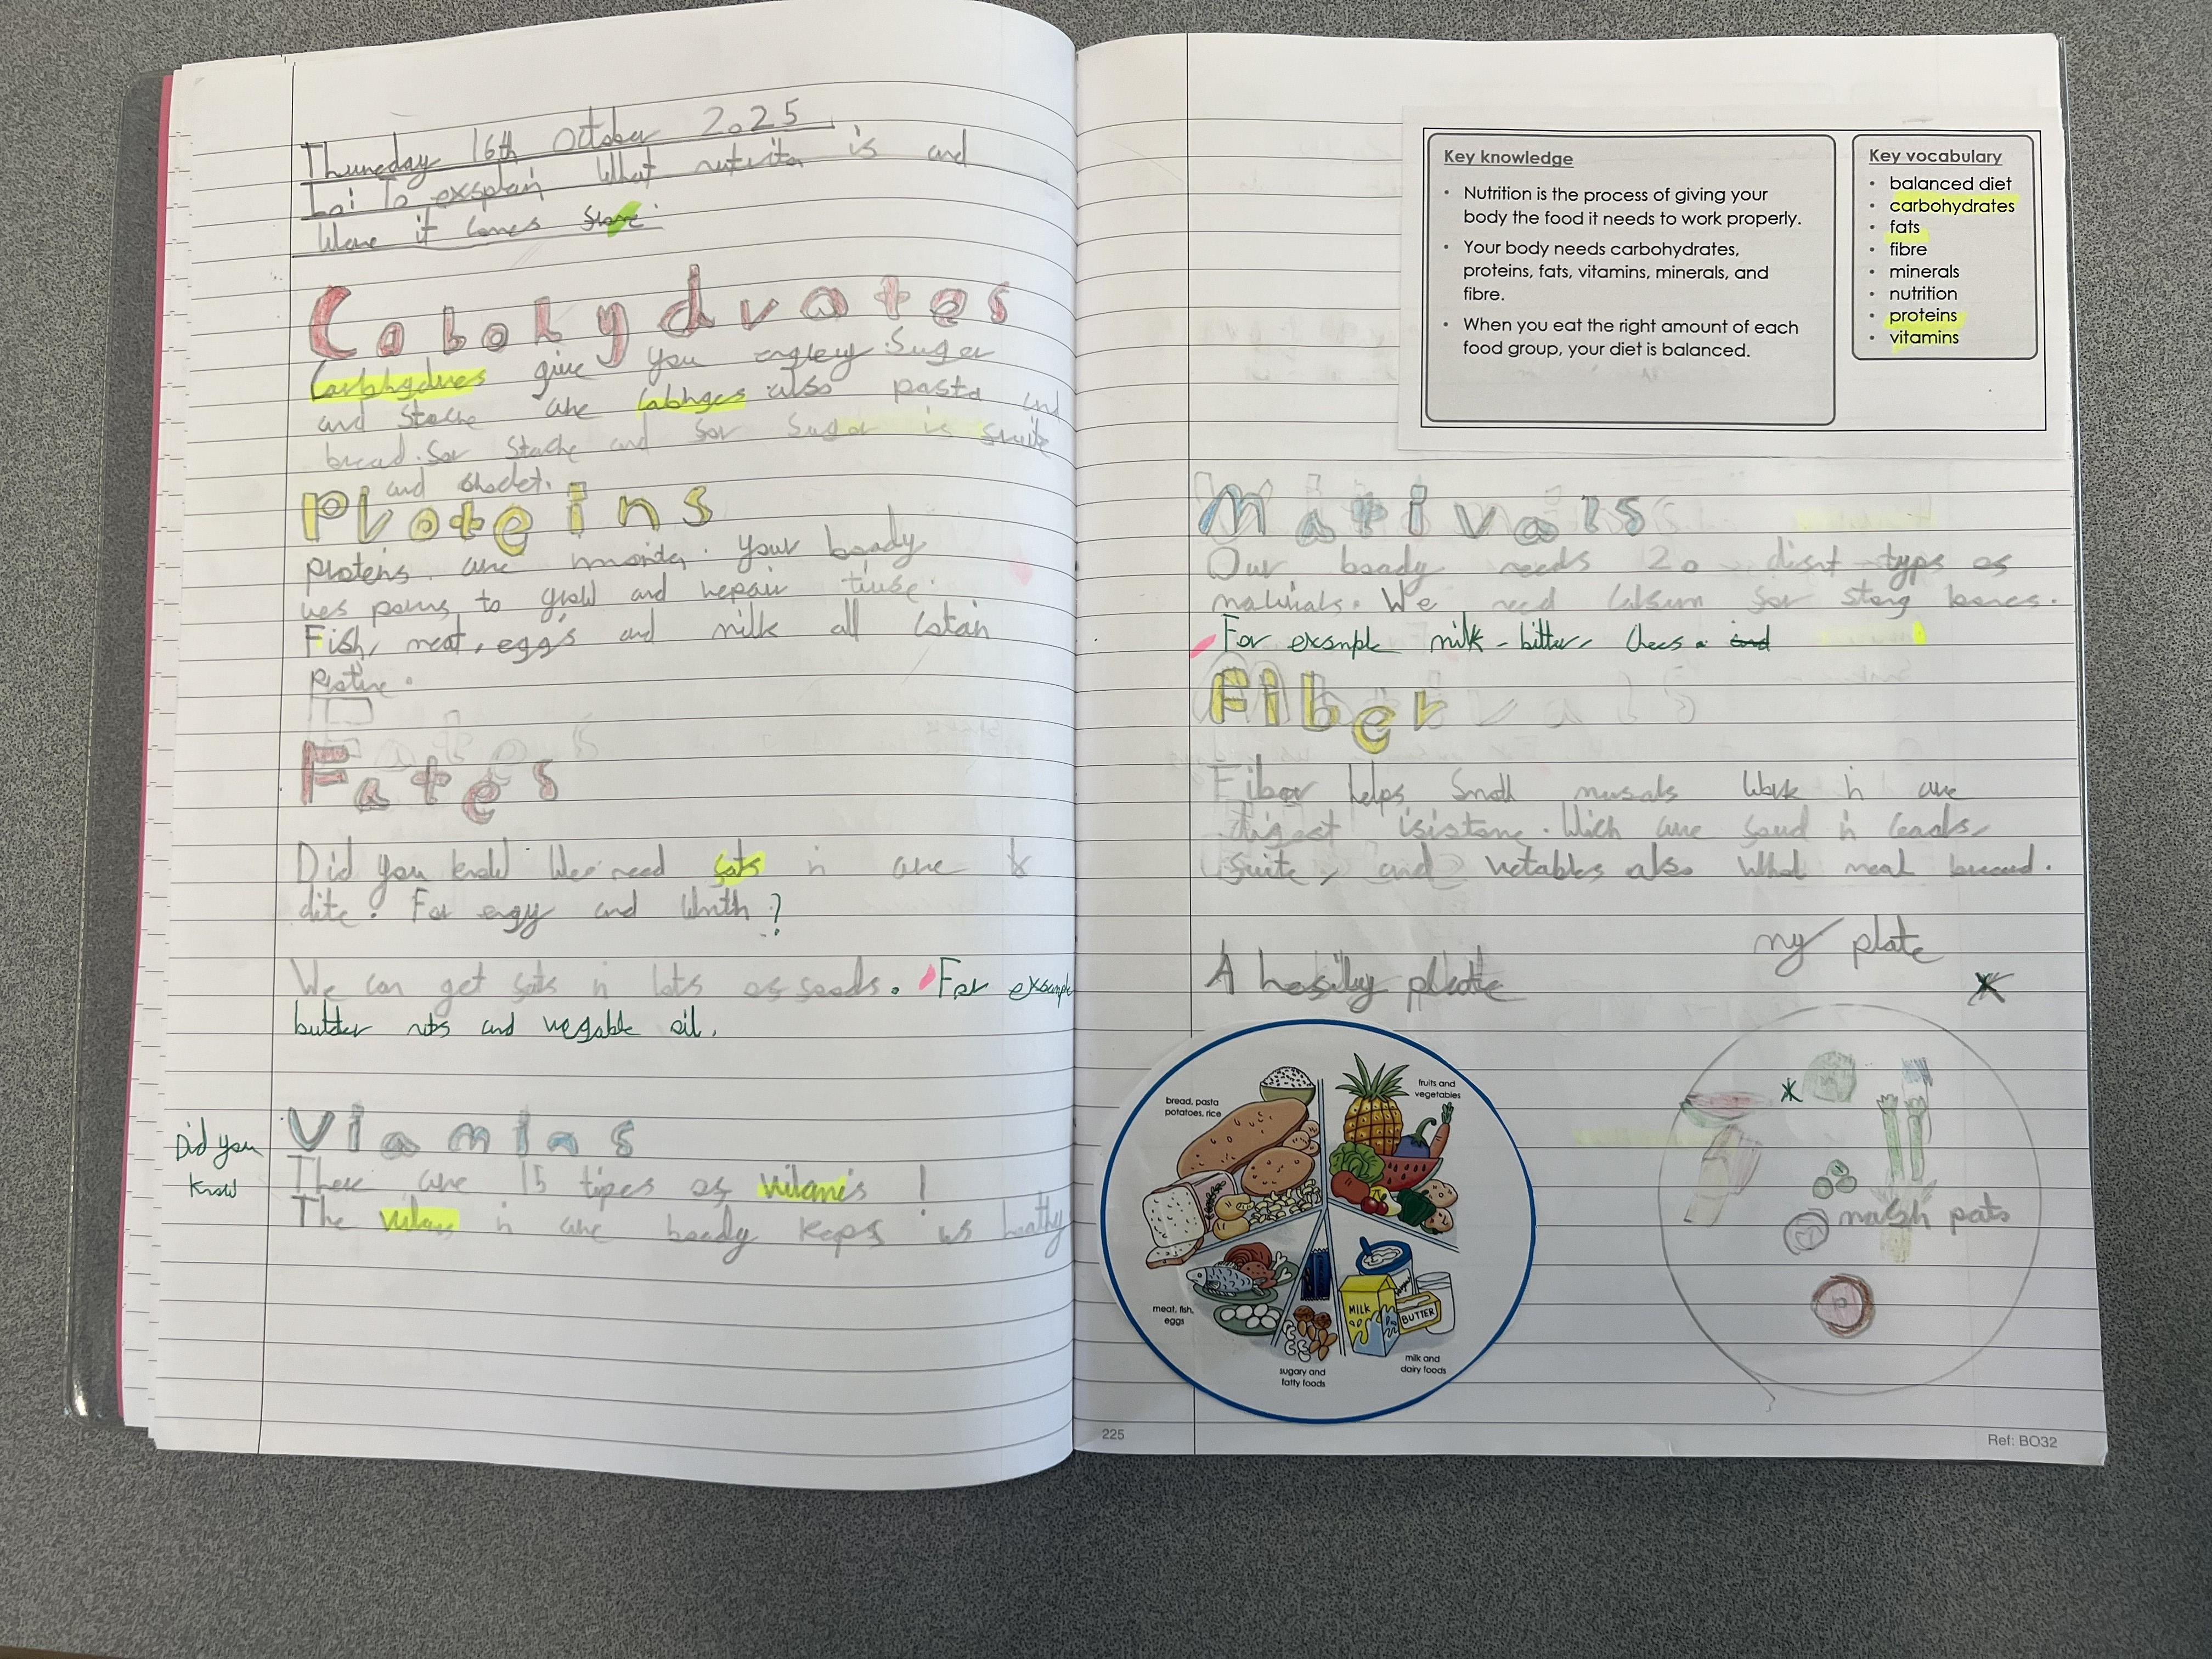 Thuneday 16th October 2025
Loi To exsplain What nutrita is and
Were it comes
Cabohydvates
Carbhydnes give you engley. Suger
and Stache are cabhges also pasta and
bread. for Stache and for Suger is fruite
and choclet.
Proteins
proteins. are inmonita. your boady
ues poms to grow and repair tiuse.
Fish, meat, eggs and milk all cotain
protine.
Fates
Did you know We need fats in are
dite. For engy and Wmth?
We can get fats in lots of foods. For exsample
butter nuts and vegable oil.
Did you
know
Viamins
There are 15 tipes of vitamis !
The in are boady keeps us heathy
Key knowledge
• Nutrition is the process of giving your
body the food it needs to work properly.
• Your body needs carbohydrates,
proteins, fats, vitamins, minerals, and
fibre.
• When you eat the right amount of each
food group, your diet is balanced.
Key vocabulary
• balanced diet
• carbohydrates
• fats
• fibre
• minerals
• nutrition
• proteins
• vitamins
Mativals
Our boady needs 20 disnt typs of
matirials. We need calsum for stong bones.
For exsmple milk - bitter, chees.
Fiber
Fiber helps Small musals Work in are
digest isistome. Wich are found in ceals,
fruite, and vetables also Whol meal bread.
A hesihy plate
my plate
bread, pasta
potatoes, rice
fruits and
vegetables
meat, fish,
eggs
MILK
BUTTER
sugary and
fatty foods
milk and
dairy foods
mash pats
225
Ref: BO32